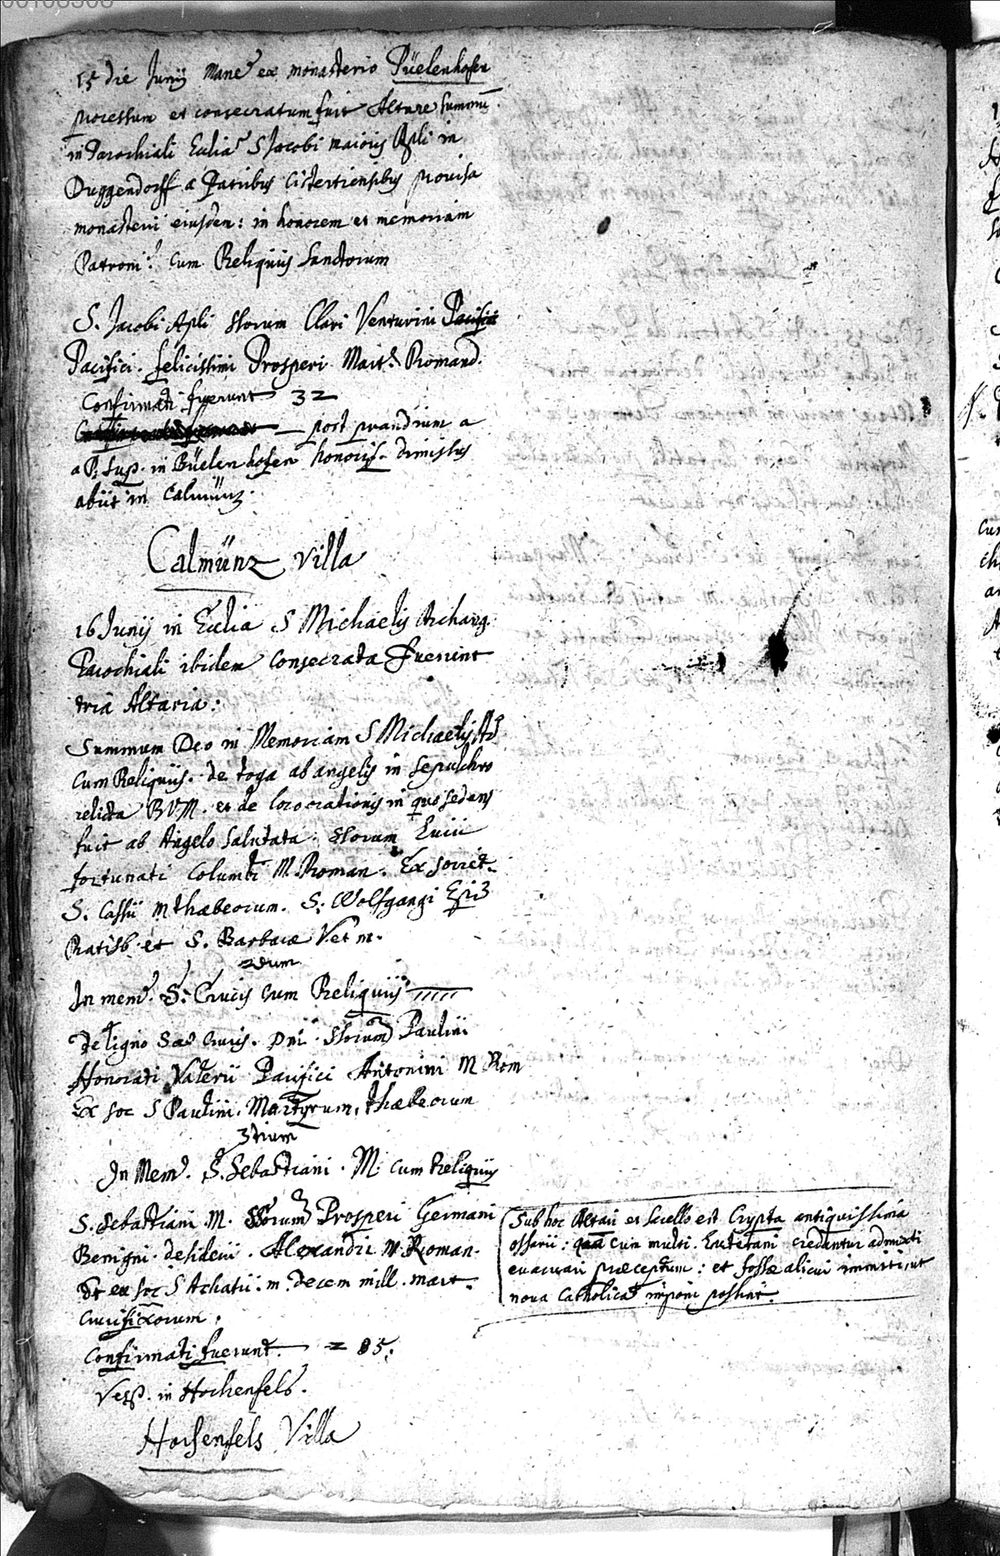 15 die Junij mane ex monasterio Püelenhofen
processum et consecratum fuit Altare summũ
in Parochiali Eccliã S Jacobi maioris Apli in
Duggendorff a Patribus Cistertiensibus provisa
monasterii eiusdem: in honorem et memoriam
Patroni: cum Reliquiis Sanctorum
S. Jacobi Apli Storum Clari Venturini
Pacifici. felicissimi Prosperi Mart. Romanor.
Confirmati fuerunt 32
post prandium a
a P. Sup. in Büelenhofen honorif. dimissus
abiit in Calmünz.
Calmünz villa
16 Junij in Ecclia S Michaelis Archang.
Parochiali ibidem consecrata fuerunt
tria Altaria:
Summum Deo in Memoriam S Michaelis Ar
cum Reliquiis. de toga ab angelis in sepulchro
relicta BVM. et de loco orationis in quo sedens
fuit ab Angelo salutata. Storum Lucii
fortunati Columbi M. Roman. Ex societ.
S. Cassii M thæbeorum. S. Wolfgangi Epi
Ratisb. et S. Barbaræ V et m.
2dum
In mem. S. Crucis cum Reliquiis
De ligno Sac Crucis. Dni Storum Paulini
Honorati Valerii Pacifici Antonini M Rom
Ex soc S Paulini. Martyrum, thæbeorum
3tium
In Mem. S. Sebastiani. M. cum Reliquiis
S. Sebastiani. M. Storum Prosperi Germani
Benigni. desiderii. Alexandri M. Roman.
et ex soc S Achatii. m. decem mill. mart.
Crucifixorum.
Confirmati fuerunt. = 85.
Vesp. in Hochenfels.
Hochenfels Villa
Sub hoc Altari et sacello est Crypta antiquissima
ossarii: cum multi. Lutetani credantur admixti
evacuari præceptum: et fossæ alicui immitti, ut
nova Catholica imponi possint.